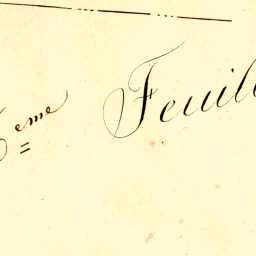 eme Feuil